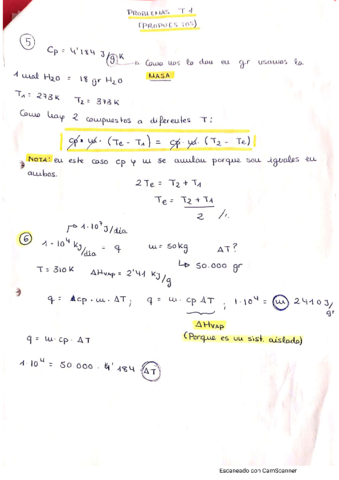 PROBLEMAS T1
(PROPUESTOS)
5
Cp = 4'184 J/g K → Como nos lo dan en gr usamos la
1 mol H2O = 18 gr H2O MASA
T1 = 273K T2 = 373K
Como hay 2 compuestos a diferentes T:
cp · m · (Te - T1) = cp · m · (T2 - Te)
NOTA: en este caso cp y m se anulan porque son iguales en
ambos.
2Te = T2 + T1
Te = T2 + T1 / 2
1·10^7 J/día
6
1·10^4 KJ/día = q m = 50kg ΔT?
50.000 gr
T = 310K ΔHvap = 2'41 KJ/g
q = cp · m · ΔT ; q = m · cp ΔT ; 1·10^4 = m 2410 J/gr
ΔHvap
(Porque es un sist. aislado)
q = m · cp · ΔT
1·10^4 = 50.000 · 4'184 ΔT
Escaneado con CamScanner